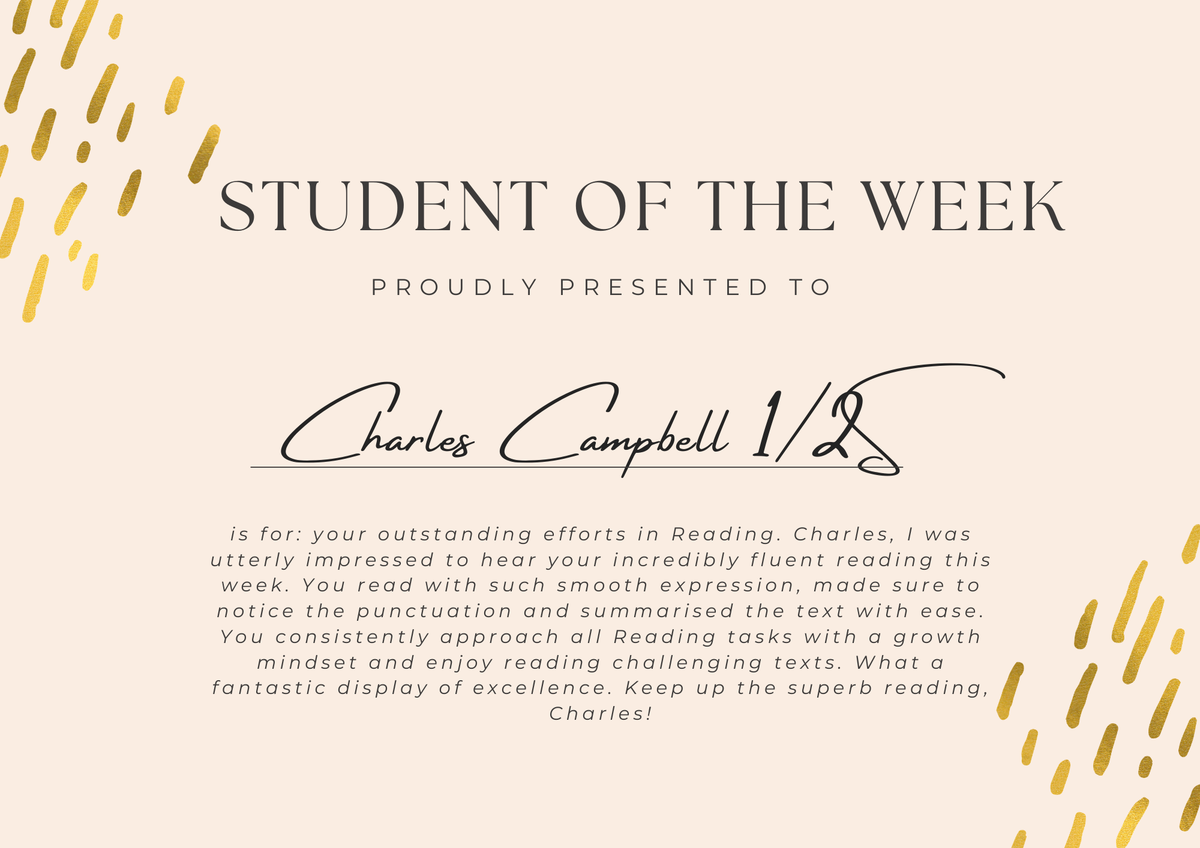 STUDENT OF THE WEEK
PROUDLY PRESENTED TO
Charles Campbell 1/2S
is for: your outstanding efforts in Reading. Charles, I was
utterly impressed to hear your incredibly fluent reading this
week. You read with such smooth expression, made sure to
notice the punctuation and summarised the text with ease.
You consistently approach all Reading tasks with a growth
mindset and enjoy reading challenging texts. What a
fantastic display of excellence. Keep up the superb reading,
Charles!